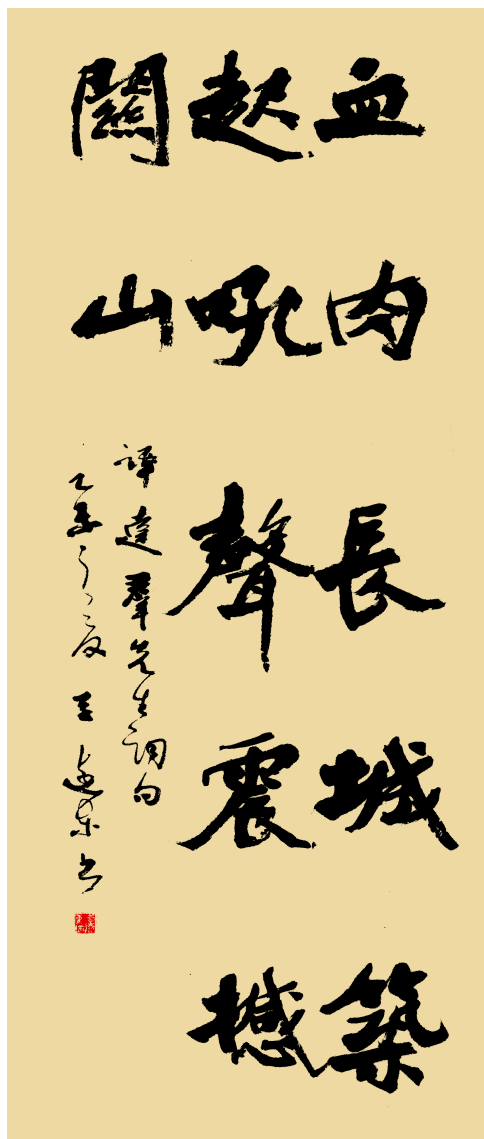 血肉長城築
起吼聲震撼
關山
譚達羣先生詞句
乙未夏王遠东书